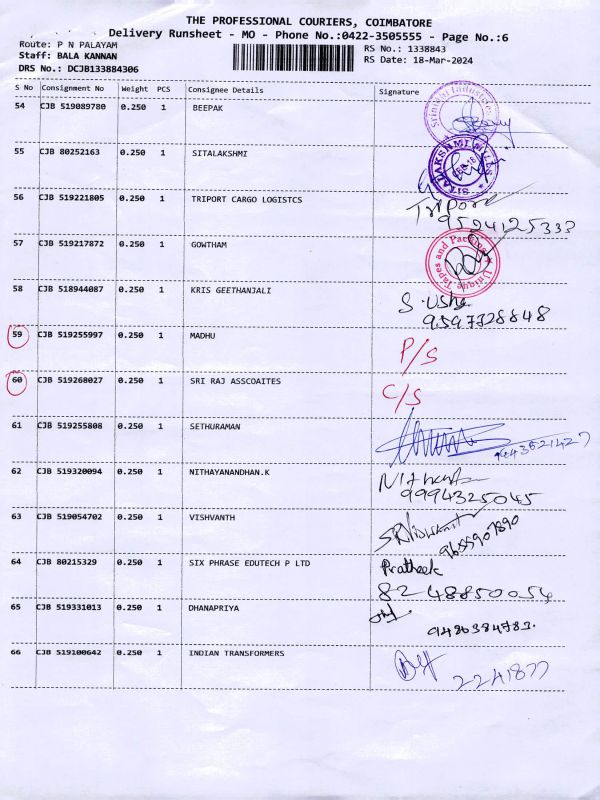 THE PROFESSIONAL COURIERS, COIMBATORE
Delivery Runsheet - MO - Phone No.:0422-3505555 - Page No.:6
Route: P N PALAYAM
RS No.: 1338843
Staff: BALA KANNAN
RS Date: 18-Mar-2024
DRS No.: DCJB133884306
S No Consignment No Weight PCS Consignee Details Signature
54 CJB 519089780 0.250 1 BEEPAK
55 CJB 80252163 0.250 1 SITALAKSHMI
SITALAKSHMI MILLS
56 CJB 519221805 0.250 1 TRIPORT CARGO LOGISTCS Tripord
9594125333
57 CJB 519217872 0.250 1 GOWTHAM
Unique Tapes and Packing
58 CJB 518944087 0.250 1 KRIS GEETHANJALI S. Usha
9597328848
59 CJB 519255997 0.250 1 MADHU P/S
60 CJB 519268027 0.250 1 SRI RAJ ASSCOAITES C/S
61 CJB 519255808 0.250 1 SETHURAMAN
62 CJB 519320094 0.250 1 NITHAYANANDHAN.K
9994325045
63 CJB 519054702 0.250 1 VISHVANTH
9655907890
64 CJB 80215329 0.250 1 SIX PHRASE EDUTECH P LTD Pratheek
8248850054
65 CJB 519331013 0.250 1 DHANAPRIYA
9480384783.
66 CJB 519100642 0.250 1 INDIAN TRANSFORMERS
2241877